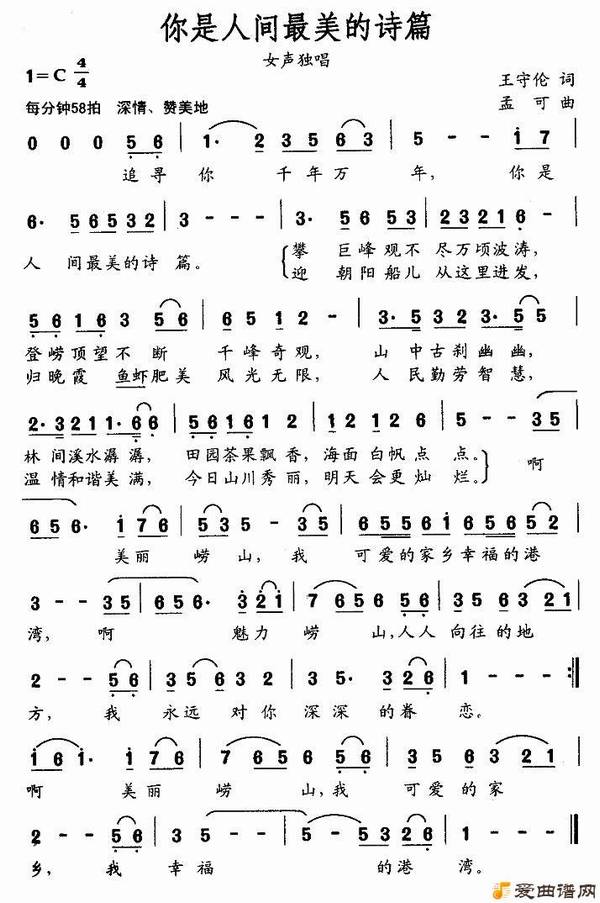 你是人间最美的诗篇
女声独唱
1=C 4/4
王守伦 词
每分钟58拍 深情、赞美地
孟可 曲
0 0 0 5 6 | 1· 2 3 5 6 3 | 5 - - 1 7 |
追寻 你 千年万 年, 你是
6· 5 6 5 3 2 | 3 - - - | 3· 5 6 5 3 | 2 3 2 1 6· |
人 间最美的诗 篇。 攀 巨峰 观不 尽万顷波涛,
迎 朝阳 船儿 从这里进发,
5 6 1 6 3 5 6 | 6 5 1 2 - | 3· 2 3 2 3· 5 5 |
登崂顶望不断 千峰奇观, 山 中古刹幽幽,
归晚霞 鱼虾肥美 风光无限, 人 民勤劳智慧,
2· 3 2 1 1· 6 6 | 5 6 5 6 1 6 1 2 | 6 1 2 6 1 2 | 5 - - 3 5 |
林 间溪水潺潺, 田园茶果飘香, 海面白帆点 点。 啊
温 情和谐美满, 今日山川秀丽, 明天会更灿 烂。
6 5 6· 1 7 6 | 5 3 5 - 3 5 | 6 5 6 5 6 1 6 5 6 5 3 5 1 2 |
美丽 崂山, 我 可爱的家乡幸福的港
3 - - 3 5 | 6 5 6· 3 2 1 | 7 6 5 5 6 5 6 | 6 5 6 3 3 2 1 |
湾, 啊 魅力 崂 山,人人 向往的地
2 - - 5 6 | 1 3 5 3 5 6 | 3 5· 3· 3 2 6 | 1 - - - :|
方, 我 永远 对你 深深 的眷 恋。
1 6 1· 1 7 6 | 5 3 6 5 5 6 | 1 6 5 6 3 |
啊 美丽 崂 山,我 可爱的家
2 - - 5 6 | 1 3 5 5 5 3 5 3 2 6 | 1 - - - ‖
乡, 我 幸福 的港 湾。
爱曲谱网